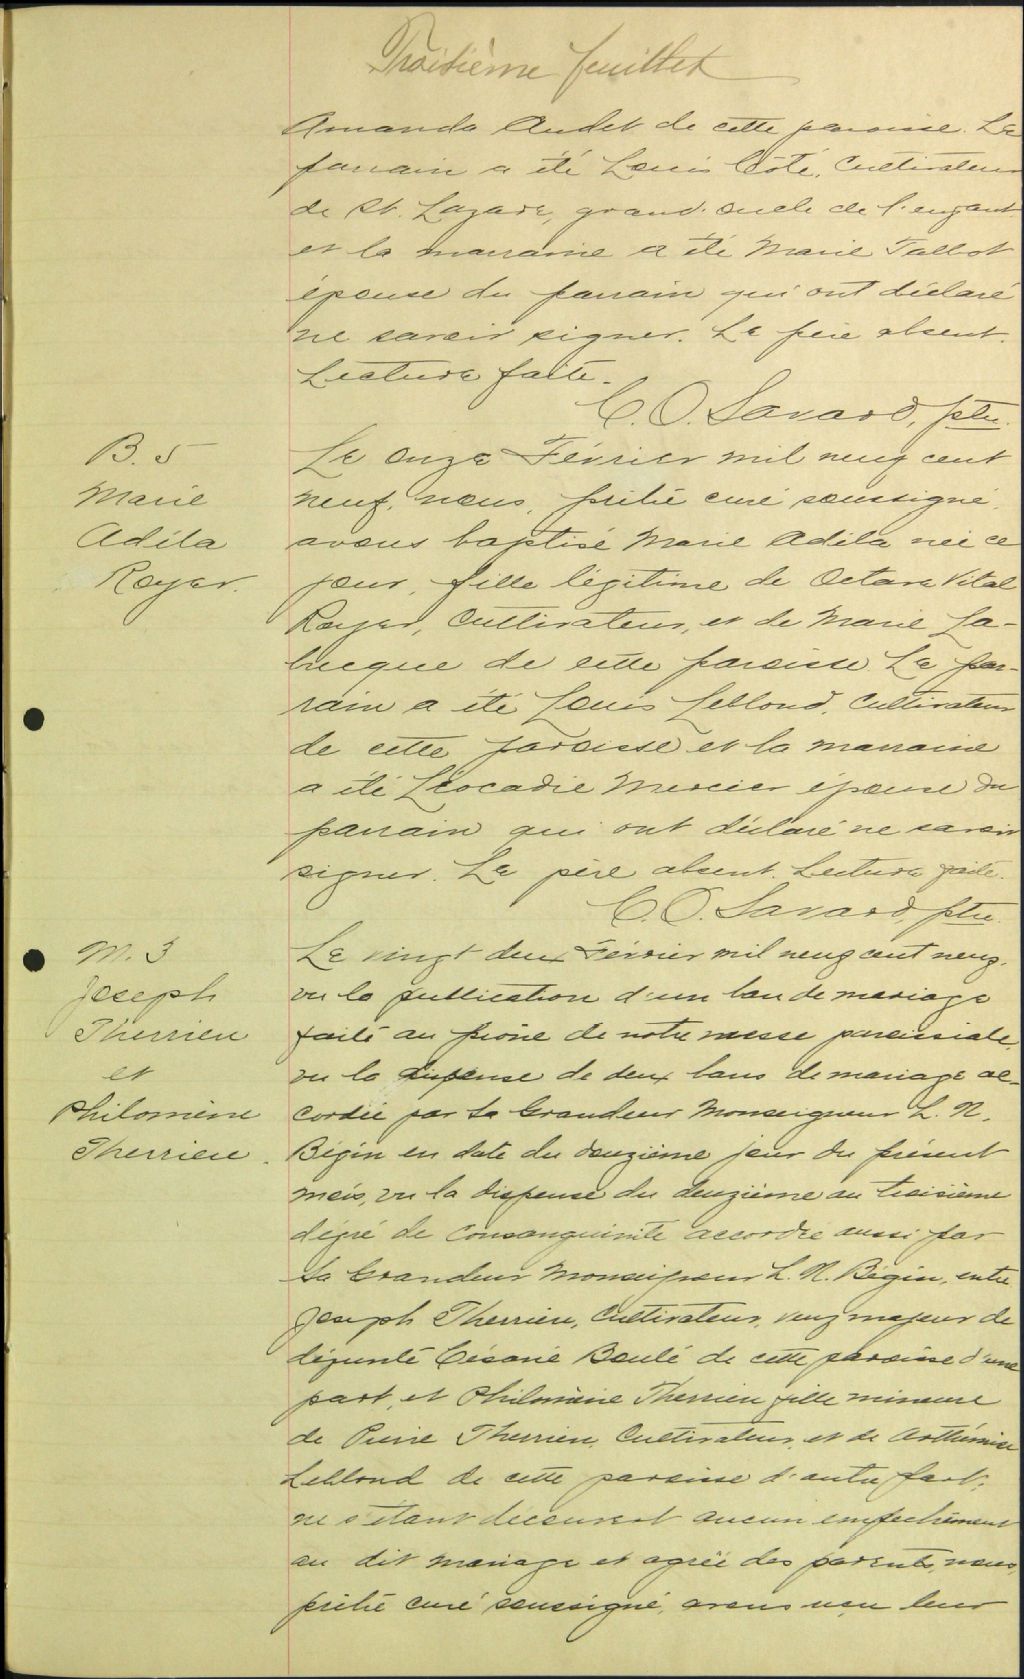 Troisième feuillet
Amanda Audet de cette paroisse. Le
parrain a été Louis Côté, Cultivateur
de St. Lazare, grand-oncle de l'enfant
et la marraine a été Marie Talbot
épouse du parrain qui ont déclaré
ne savoir signer. Le père absent.
Lecture faite.
C. O. Savard, ptre.
B. 5
Marie
Adéla
Royer.
Le onze Février mil neuf cent
neuf, nous, prêtre curé soussigné,
avons baptisé Marie Adéla née ce
jour, fille légitime de Octave Vital
Royer, Cultivateur, et de Marie La-
brecque de cette paroisse. Le par-
rain a été Louis Leblond, Cultivateur
de cette paroisse et la marraine
a été Léocadie Mercier épouse du
parrain qui ont déclaré ne savoir
signer. Le père absent. Lecture faite.
C. O. Savard, ptre.
M. 3
Joseph
Therrien
et
Philomène
Therrien.
Le vingt deux Février mil neuf cent neuf,
vu la publication d'un ban de mariage
faite au prône de notre messe paroissiale,
vu la dispense de deux bans de mariage ac-
cordée par Sa Grandeur Monseigneur L. N.
Bégin en date du douzième jour du présent
mois, vu la dispense du deuxième au troisième
dégré de Consanguinité accordée aussi par
Sa Grandeur Monseigneur L. N. Bégin, entre
Joseph Therrien, Cultivateur, veuf majeur de
défunte Césarie Boulé de cette paroisse d'une
part, et Philomène Therrien fille mineure
de Pierre Therrien, Cultivateur, et de Arthémise
Leblond de cette paroisse d'autre part,
ne s'étant découvert aucun empêchement
au dit mariage et agréé des parents, nous,
prêtre curé soussigné, avons reçu leur